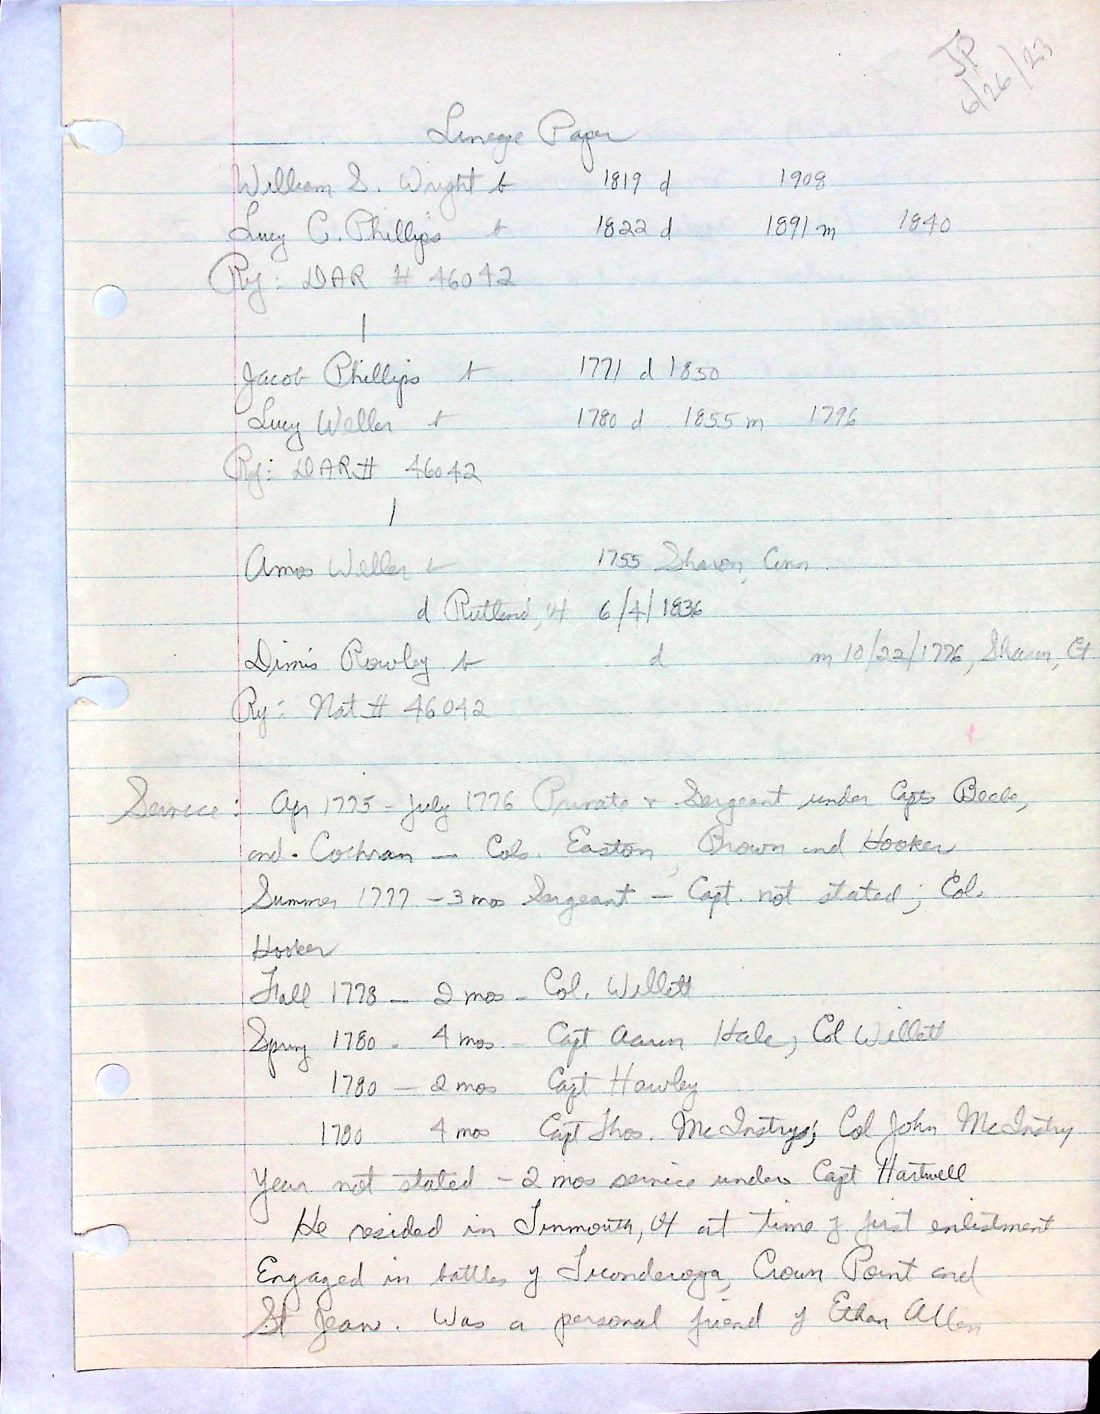 JP
6/26/23
Lineage Paper
William S. Wright b 1819 d 1908
Lucy C. Phillips b 1822 d 1891 m 1840
Ref: DAR # 46042
Jacob Phillips b 1771 d 1850
Lucy Weller b 1780 d 1855 m 1796
Ref: DAR # 46042
Amos Weller b 1755 Sharon, Conn.
d Rutland, Vt 6/4/1836
Dimis Rowley b d m 10/22/1776, Sharon, Ct
Ref: Nat # 46042
Service: Apr 1775 - July 1776 Private & Sergeant under Capts Beele,
and. Cochran — Cols. Easton, Brown and Hooker
Summer 1777 - 3 mos Sergeant — Capt. not stated; Col.
Hooker
Fall 1778 — 2 mos - Col. Willett
Spring 1780 - 4 mos - Capt Aaron Hale, Col Willett
1780 — 2 mos Capt Hawley
1780 4 mos Capt Thos. McInstry; Col John McInstry
Year not stated - 2 mos service under Capt Hartwell
He resided in Tinmouth, Vt at time of first enlistment
Engaged in battles of Ticonderoga, Crown Point and
St Jean. Was a personal friend of Ethan Allen